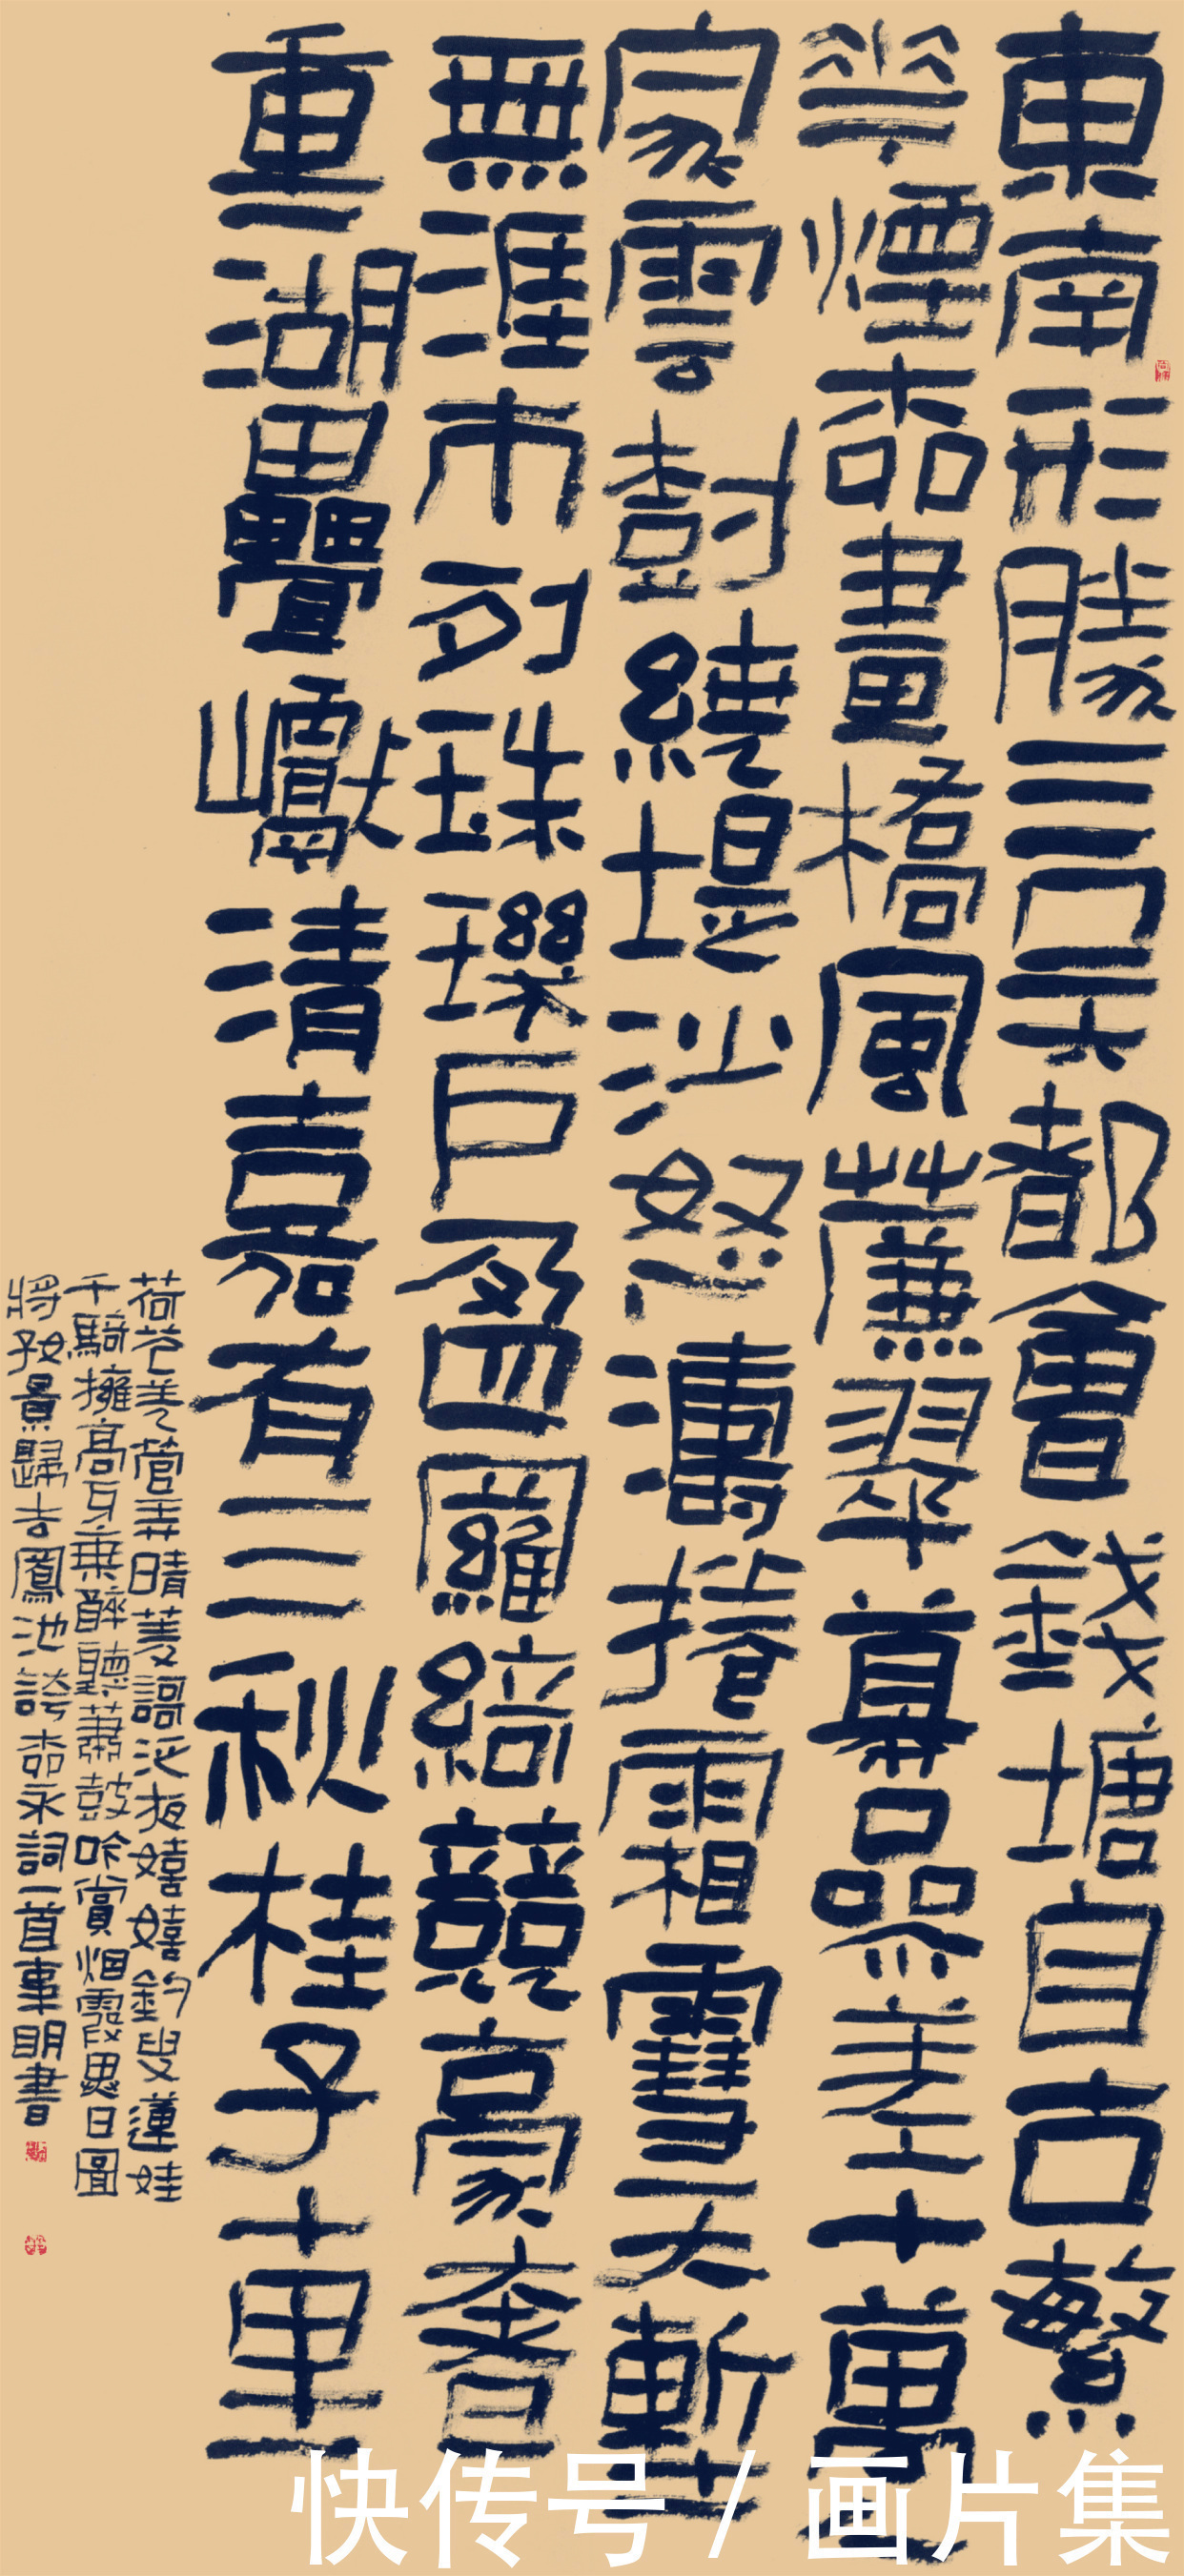 東南形勝三吳都會錢塘自古繁
華煙柳畫橋風簾翠幕參差十萬
家雲樹繞堤沙怒濤捲霜雪天塹
無涯市列珠璣戶盈羅綺競豪奢
重湖疊巘清嘉有三秋桂子十里
荷花羌管弄晴菱謌泛夜嬉嬉釣叟蓮娃
千騎擁高牙乘醉聽蕭鼓吟賞烟霞異日圖
將好景歸去鳳池誇柳永詞一首事明書
快传号 / 画片集